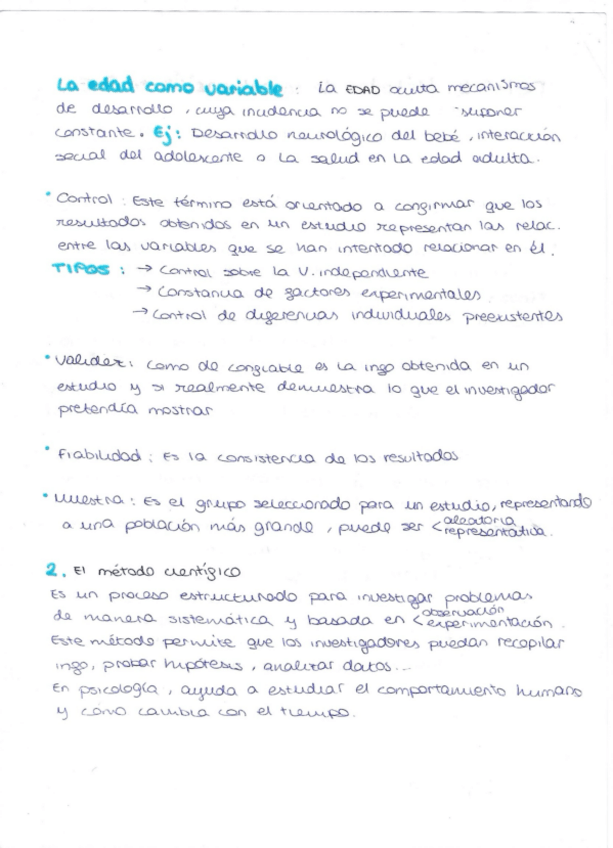 La edad como variable : La EDAD oculta mecanismos
de desarrollo, cuya incidencia no se puede suponer
constante. Ej: Desarrollo neurológico del bebé, interacción
social del adolescente o la salud en la edad adulta.
• Control : Este término está orientado a confirmar que los
resultados obtenidos en un estudio representan las relac.
entre las variables que se han intentado relacionar en él.
TIPOS : → Control sobre la V. independiente
→ Constancia de factores experimentales
→ Control de diferencias individuales preexistentes
• Validez: Como de confiable es la info obtenida en un
estudio y si realmente demuestra lo que el investigador
pretendía mostrar
• Fiabilidad : Es la consistencia de los resultados
• Muestra : Es el grupo seleccionado para un estudio, representando
a una población más grande, puede ser < aleatoria
representativa.
2. El método científico
Es un proceso estructurado para investigar problemas
de manera sistemática y basada en < observación
experimentación.
Este método permite que los investigadores puedan recopilar
info, probar hipótesis, analizar datos...
En psicología, ayuda a estudiar el comportamiento humano
y cómo cambia con el tiempo.